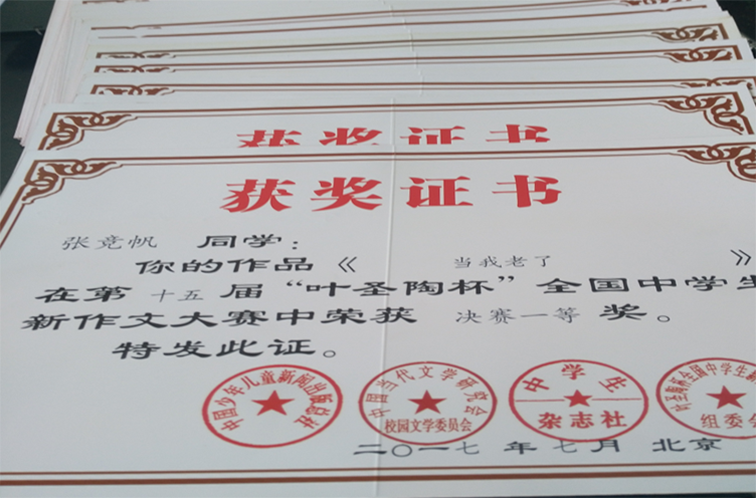 获奖证书
获奖证书
张竞帆 同学：
你的作品《 当我老了 》
在第 十五 届“叶圣陶杯”全国中学生
新作文大赛中荣获 决赛一等 奖。
特发此证。
中国少年儿童新闻出版总社
中国当代文学研究会
校园文学委员会
中学生
杂志社
叶圣陶杯全国中学生新
组委会
二〇一七 年 七 月 北京